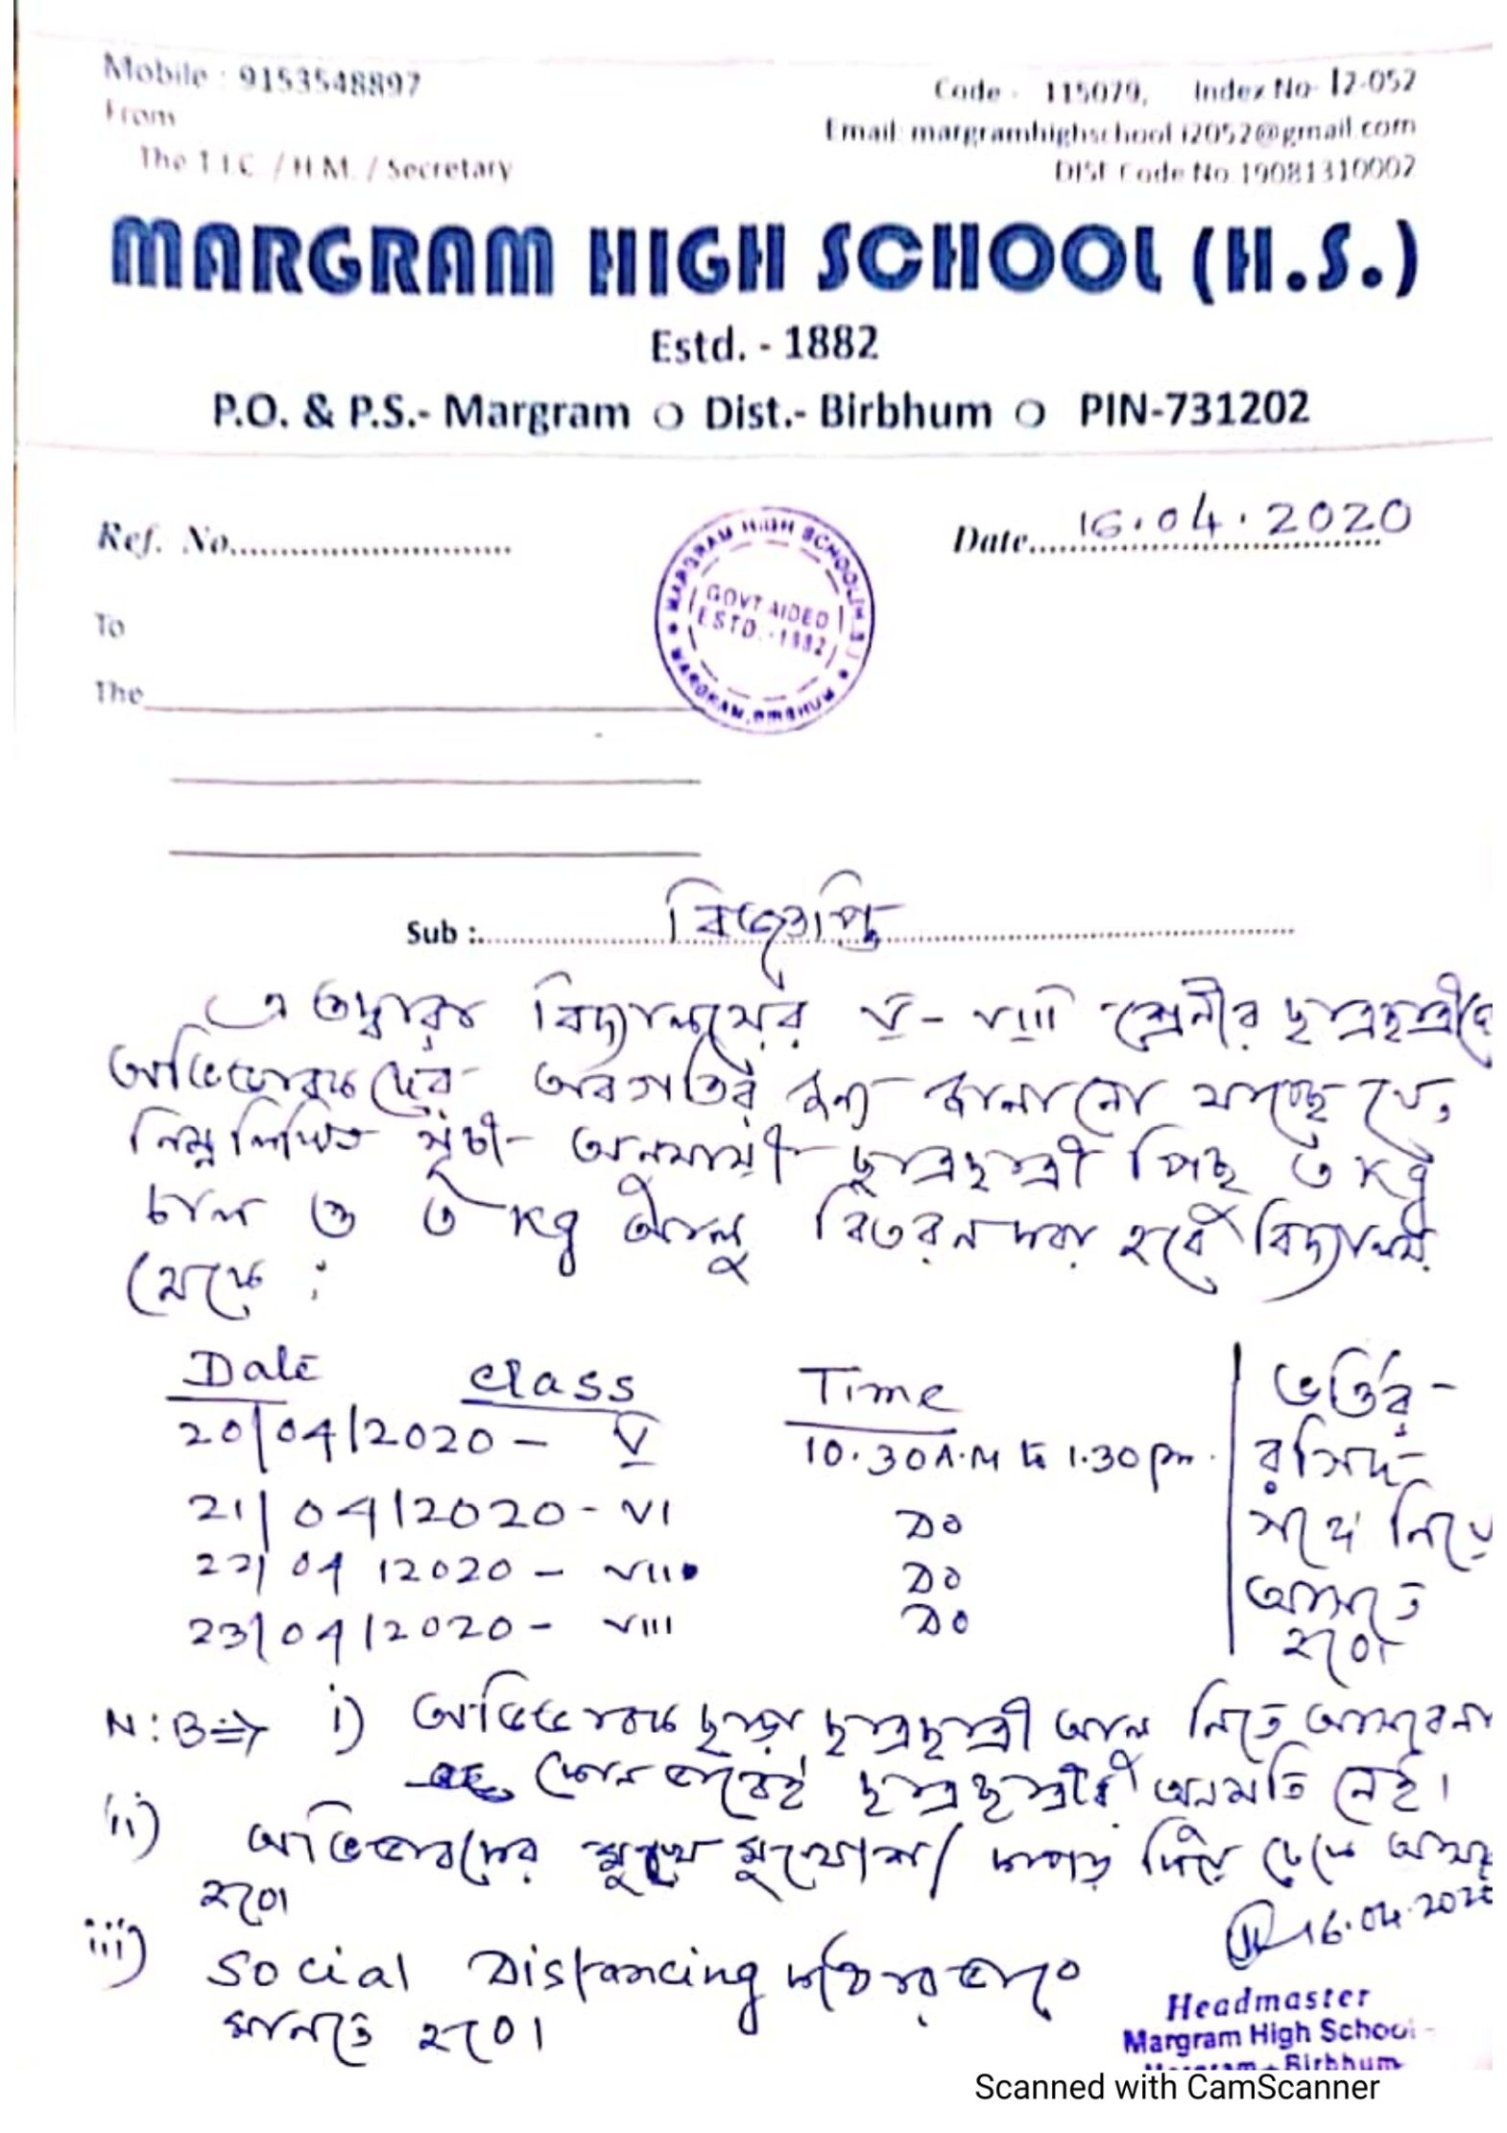 Mobile : 9153548897
Code - 115079, Index No- 12-052
From
Email: margramhighschool.i2052@gmail.com
The T.I.C. / H.M. / Secretary
DISE Code No 19081310002
MARGRAM HIGH SCHOOL (H.S.)
Estd. - 1882
P.O. & P.S.- Margram O Dist.- Birbhum O PIN-731202
Ref. No.
Date 16.04.2020
MARGRAM HIGH SCHOOL (H.S.)
GOVT AIDED
ESTD.-1882
MARGRAM, BIRBHUM
To
The
Sub : বিজ্ঞপ্তি
এতদ্বারা বিদ্যালয়ের V - VIII শ্রেনীর ছাত্রছাত্রীদের
অভিভাবকদের অবগতির জন্য জানানো যাচ্ছে যে,
নিম্নলিখিত সূচী অনুযায়ী ছাত্রছাত্রী পিছু ৩ কেজি
চাল ও ৩ কেজি আলু বিতরন করা হবে বিদ্যালয়
থেকে :
Date Class Time
20/04/2020 - V 10.30 A.M to 1.30 pm.
21/04/2020 - VI Do
22/04/2020 - VII Do
23/04/2020 - VIII Do
ভর্তির
রসিদ
সাথে নিয়ে
আসতে
হবে।
N:B⇒ i) অভিভাবক ছাড়া ছাত্রছাত্রী চাল নিতে আসবেনা
কোন ভাবেই ছাত্রছাত্রীর অনুমতি নেই।
ii) অভিভাবকদের মুখে মুখোশ/ কাপড় দিয়ে ঢেকে আসতে
হবে।
iii) Social Distancing কঠোর ভাবে
মানতে হবে।
16.04.2020
Headmaster
Margram High School
Margram, Birbhum
Scanned with CamScanner